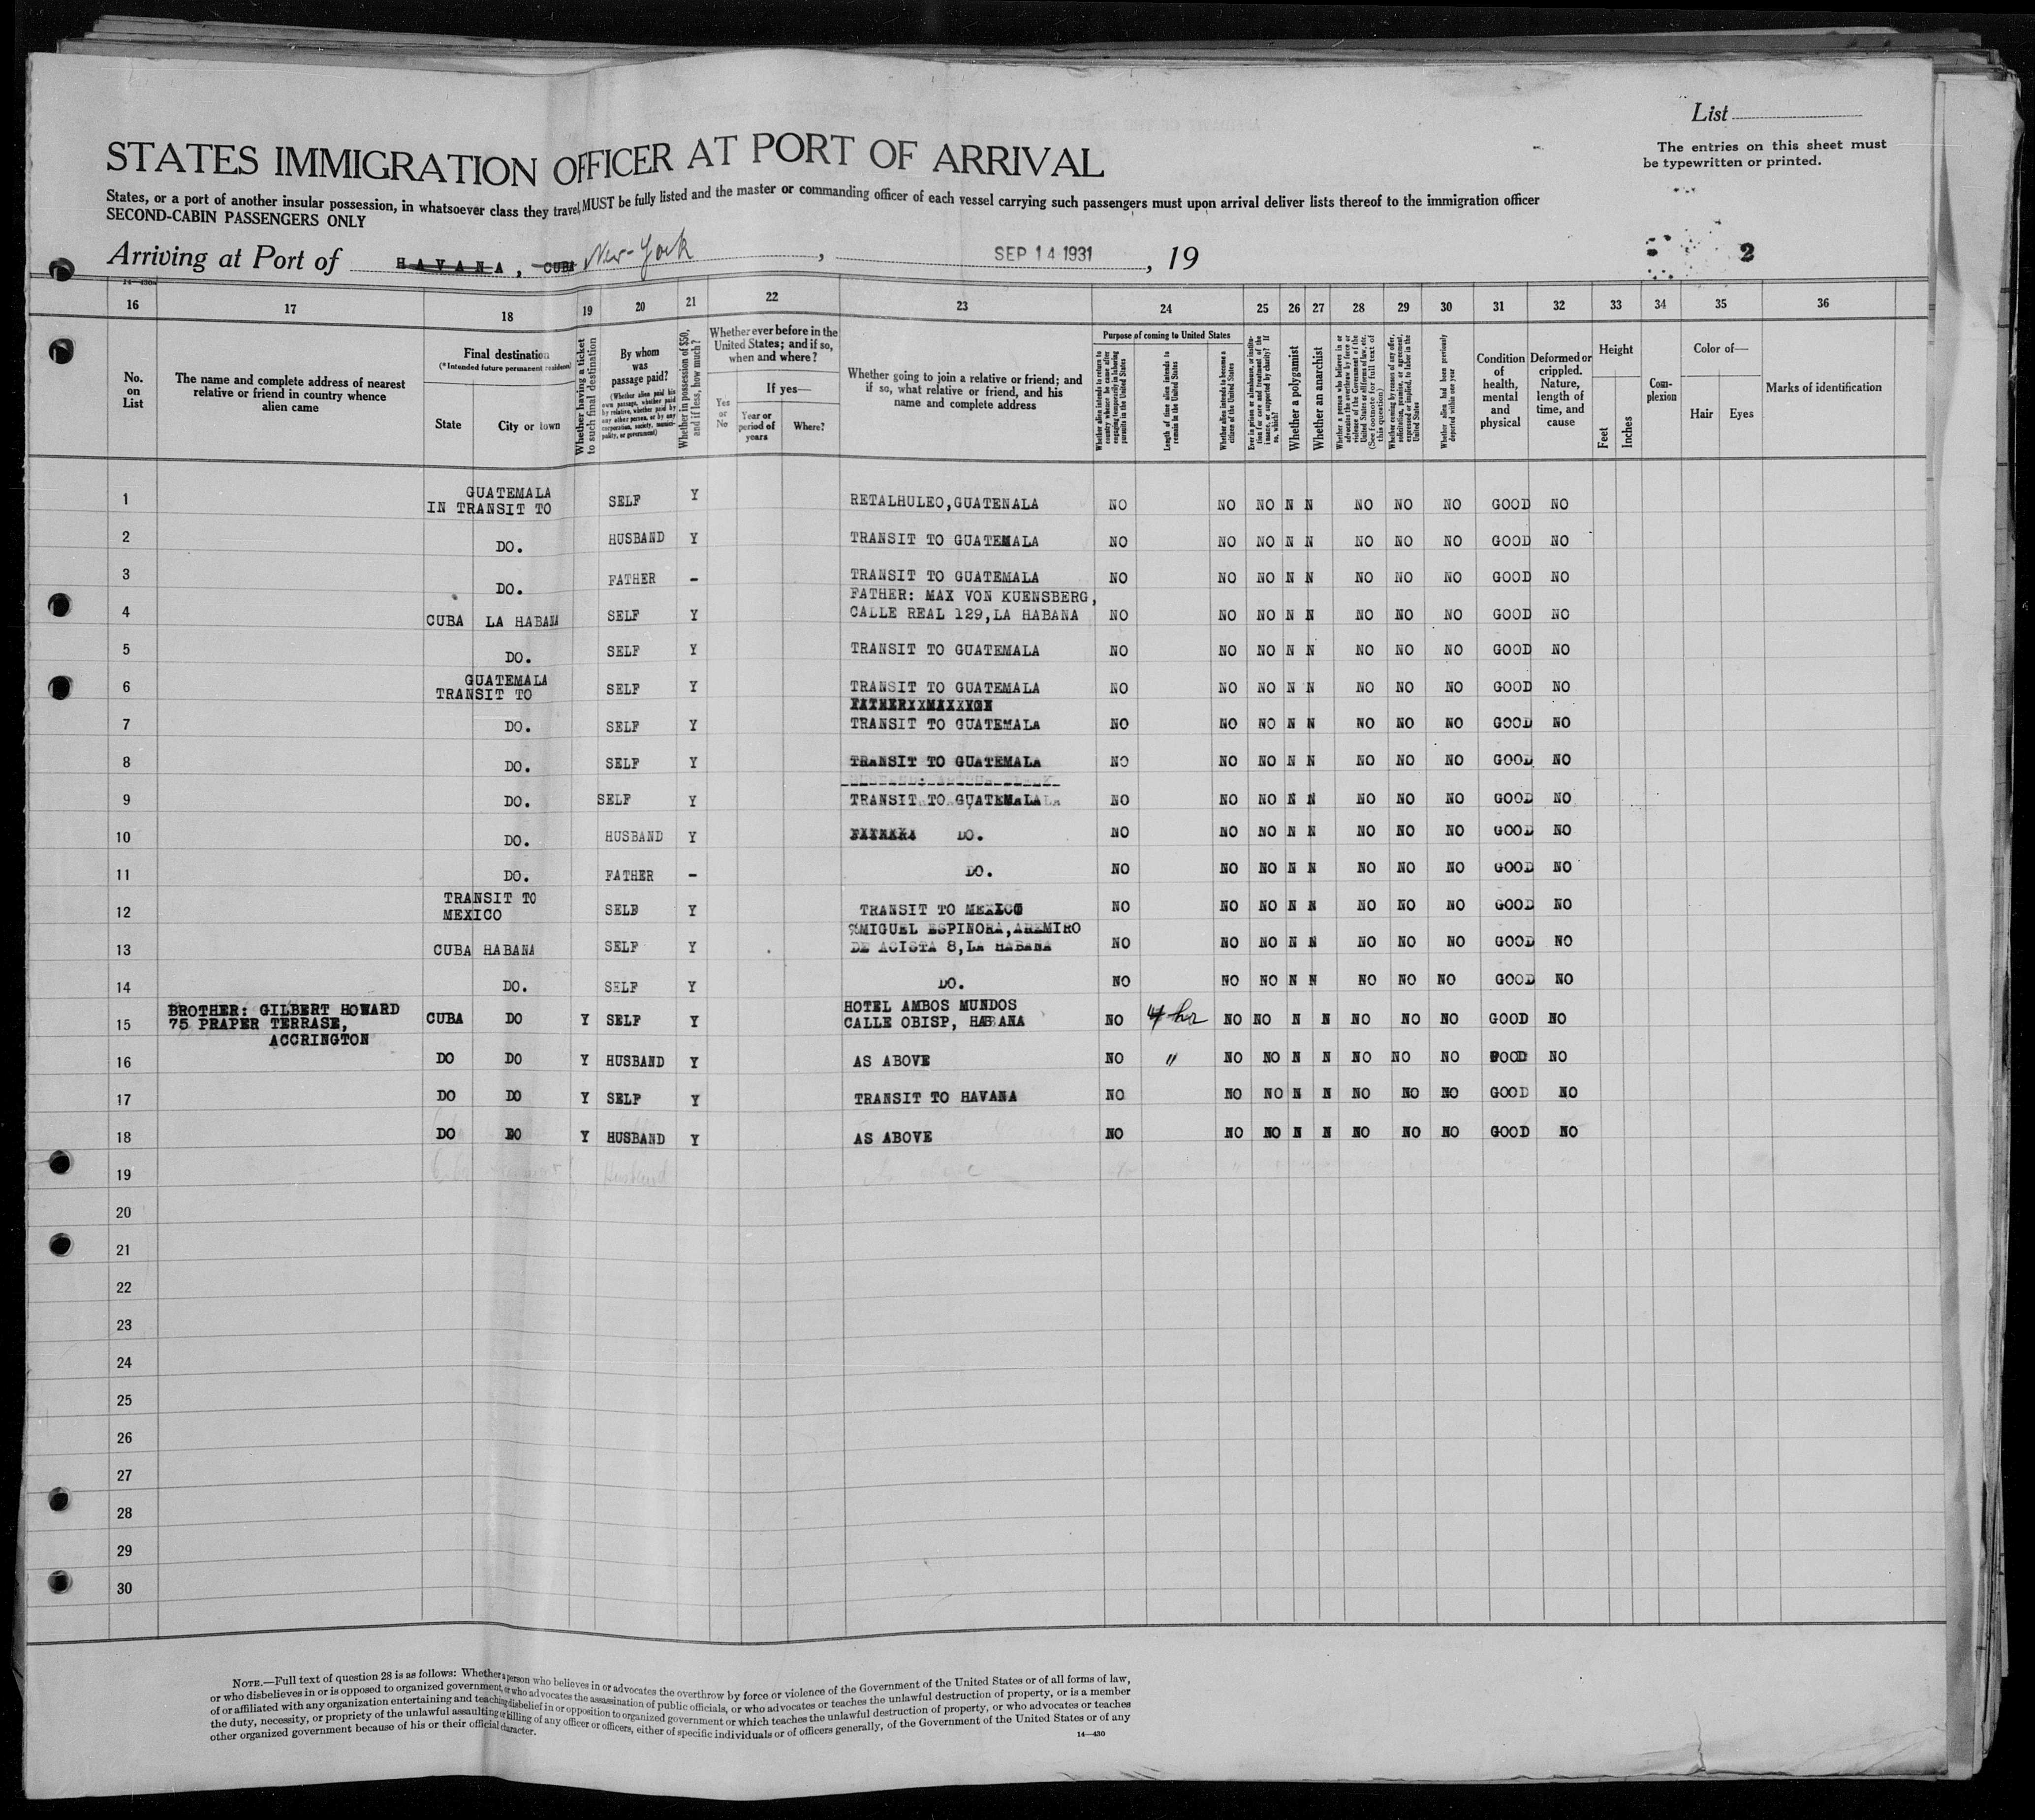 List
The entries on this sheet must
be typewritten or printed.
STATES IMMIGRATION OFFICER AT PORT OF ARRIVAL
States, or a port of another insular possession, in whatsoever class they travel, MUST be fully listed and the master or commanding officer of each vessel carrying such passengers must upon arrival deliver lists thereof to the immigration officer
SECOND-CABIN PASSENGERS ONLY
Arriving at Port of HAVANA, CUBA New-York, SEP 14 1931, 19 2
14—430a
16 17 18 19 20 21 22 23 24 25 26 27 28 29 30 31 32 33 34 35 36
No.
on
List
The name and complete address of nearest
relative or friend in country whence
alien came
Final destination
(*Intended future permanent residence)
State City or town
Whether having a ticket
to such final destination
By whom
was
passage paid?
(Whether alien paid his
own passage, whether paid
by relative, whether paid by
any other person, or by any
corporation, society, munici-
pality, or government)
Whether in possession of $50,
and if less, how much?
Whether ever before in the
United States; and if so,
when and where?
Yes
or
No
If yes—
Year or
period of
years
Where?
Whether going to join a relative or friend; and
if so, what relative or friend, and his
name and complete address
Purpose of coming to United States
Whether alien intends to return to
country whence he came after
engaging temporarily in laboring
pursuits in the United States
Length of time alien intends to
remain in the United States
Whether alien intends to become a
citizen of the United States
Ever in prison or almshouse, or institu-
tion for care and treatment of the
insane, or supported by charity? If
so, which?
Whether a polygamist
Whether an anarchist
Whether a person who believes in or
advocates the overthrow by force or
violence of the Government of the
United States or all forms of law, etc.
(See footnote for full text of
this question.)
Whether coming by reason of any offer,
solicitation, promise, or agreement,
expressed or implied, to labor in the
United States
Whether alien had been previously
deported within one year
Condition
of
health,
mental
and
physical
Deformed or
crippled.
Nature,
length of
time, and
cause
Height
Feet Inches
Com-
plexion
Color of—
Hair Eyes
Marks of identification
1 GUATEMALA
IN TRANSIT TO SELF Y RETALHULEO,GUATENALA NO NO NO N N NO NO NO GOOD NO
2 DO. HUSBAND Y TRANSIT TO GUATEMALA NO NO NO N N NO NO NO GOOD NO
3 DO. FATHER - TRANSIT TO GUATEMALA NO NO NO N N NO NO NO GOOD NO
FATHER: MAX VON KUENSBERG,
4 CUBA LA HABANA SELF Y CALLE REAL 129,LA HABANA NO NO NO N N NO NO NO GOOD NO
5 DO. SELF Y TRANSIT TO GUATEMALA NO NO NO N N NO NO NO GOOD NO
6 GUATEMALA
TRANSIT TO SELF Y TRANSIT TO GUATEMALA NO NO NO N N NO NO NO GOOD NO
7 DO. SELF Y TRANSIT TO GUATEMALA NO NO NO N N NO NO NO GOOD NO
8 DO. SELF Y TRANSIT TO GUATEMALA NO NO NO N N NO NO NO GOOD NO
9 DO. SELF Y TRANSIT TO GUATEMALA NO NO NO N N NO NO NO GOOD NO
10 DO. HUSBAND Y DO. NO NO NO N N NO NO NO GOOD NO
11 DO. FATHER - DO. NO NO NO N N NO NO NO GOOD NO
12 TRANSIT TO
MEXICO SELB Y TRANSIT TO MEXICO NO NO NO N N NO NO NO GOOD NO
%MIGUEL ESPINORA,AREMIRO
13 CUBA HABANA SELF Y DE ACISTA 8,LA HABANA NO NO NO N N NO NO NO GOOD NO
14 DO. SELF Y DO. NO NO NO N N NO NO NO GOOD NO
BROTHER: GILBERT HOWARD HOTEL AMBOS MUNDOS
15 75 PRAPER TERRASE, CUBA DO Y SELF Y CALLE OBISP, HABANA NO 4 hr NO NO N N NO NO NO GOOD NO
ACCRINGTON
16 DO DO Y HUSBAND Y AS ABOVE NO " NO NO N N NO NO NO GOOD NO
17 DO DO Y SELF Y TRANSIT TO HAVANA NO NO NO N N NO NO NO GOOD NO
18 DO DO Y HUSBAND Y AS ABOVE NO NO NO N N NO NO NO GOOD NO
19 Husband
20
21
22
23
24
25
26
27
28
29
30
NOTE.—Full text of question 28 is as follows: Whether a person who believes in or advocates the overthrow by force or violence of the Government of the United States or of all forms of law,
or who disbelieves in or is opposed to organized government, or who advocates the assassination of public officials, or who advocates or teaches the unlawful destruction of property, or is a member
of or affiliated with any organization entertaining and teaching disbelief in or opposition to organized government or which teaches the unlawful destruction of property, or who advocates or teaches
the duty, necessity, or propriety of the unlawful assaulting or killing of any officer or officers, either of specific individuals or of officers generally, of the Government of the United States or of any
other organized government because of his or their official character.
14—430